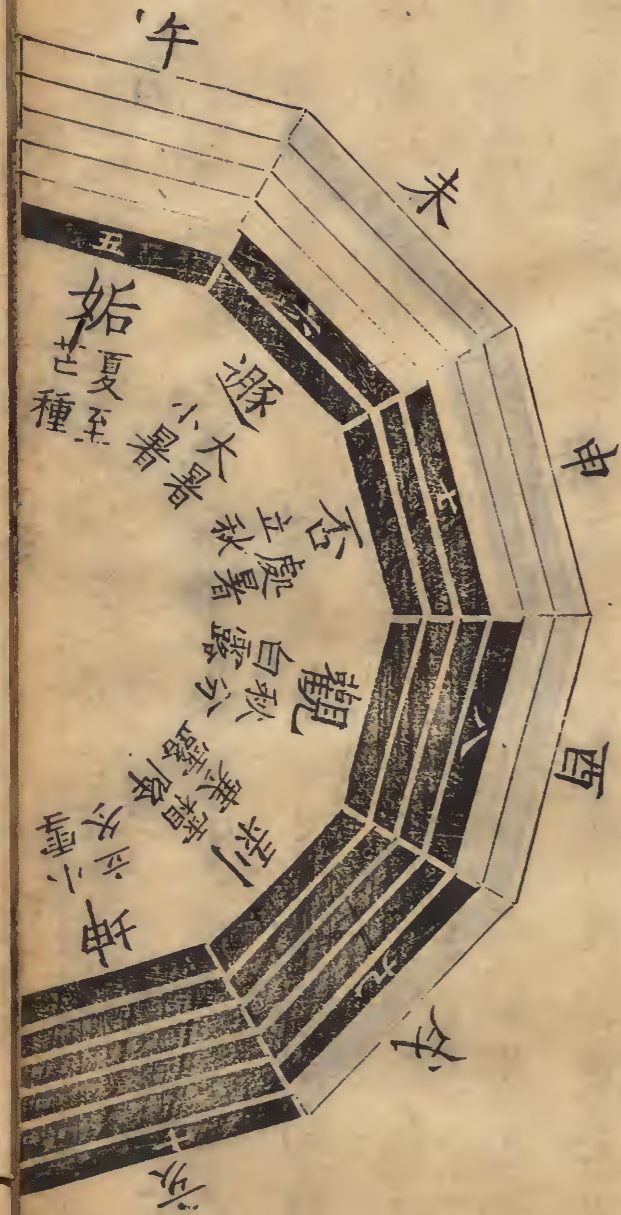 午
未
申
酉
戌
亥
五
六
七
八
九
十
姤
夏至
芒種
遯
大暑
小暑
否
處暑
立秋
觀
秋分
白露
剥
霜降
寒露
坤
立冬
小雪